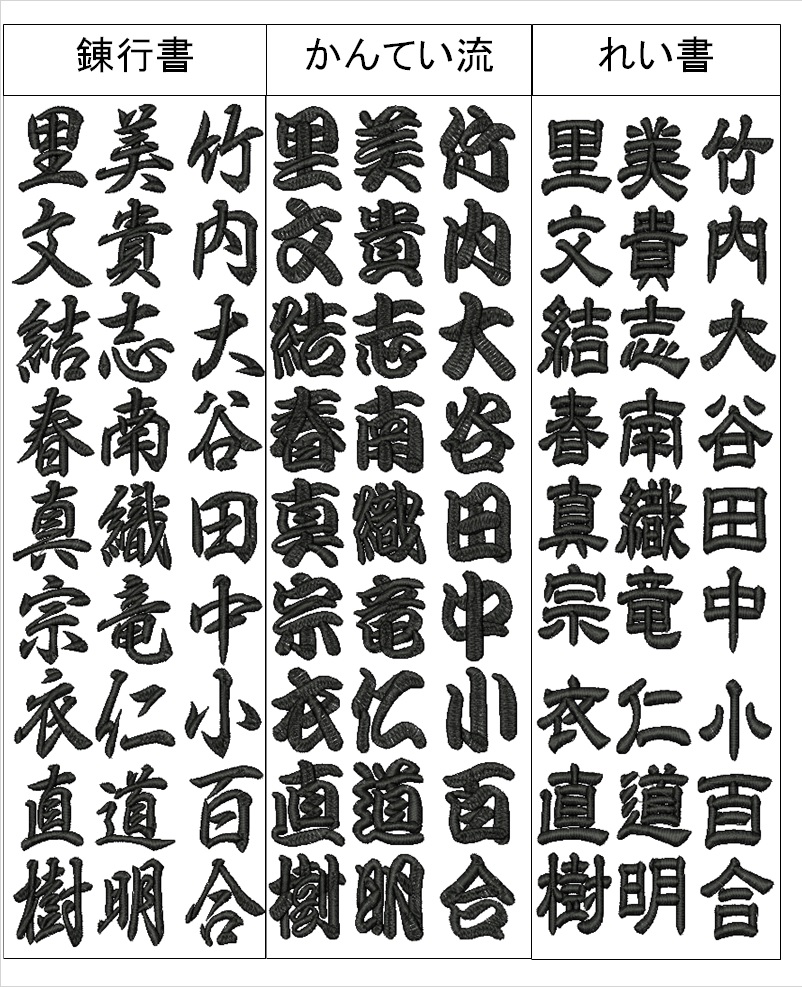 錬行書
里美竹
文貴内
結志大
春南谷
真織田
宗竜中
衣仁小
直道百
樹明合
かんてい流
里美竹
文貴内
結志大
春南谷
真織田
宗竜中
衣仁小
直道百
樹明合
れい書
里美竹
文貴内
結志大
春南谷
真織田
宗竜中
衣仁小
直道百
樹明合